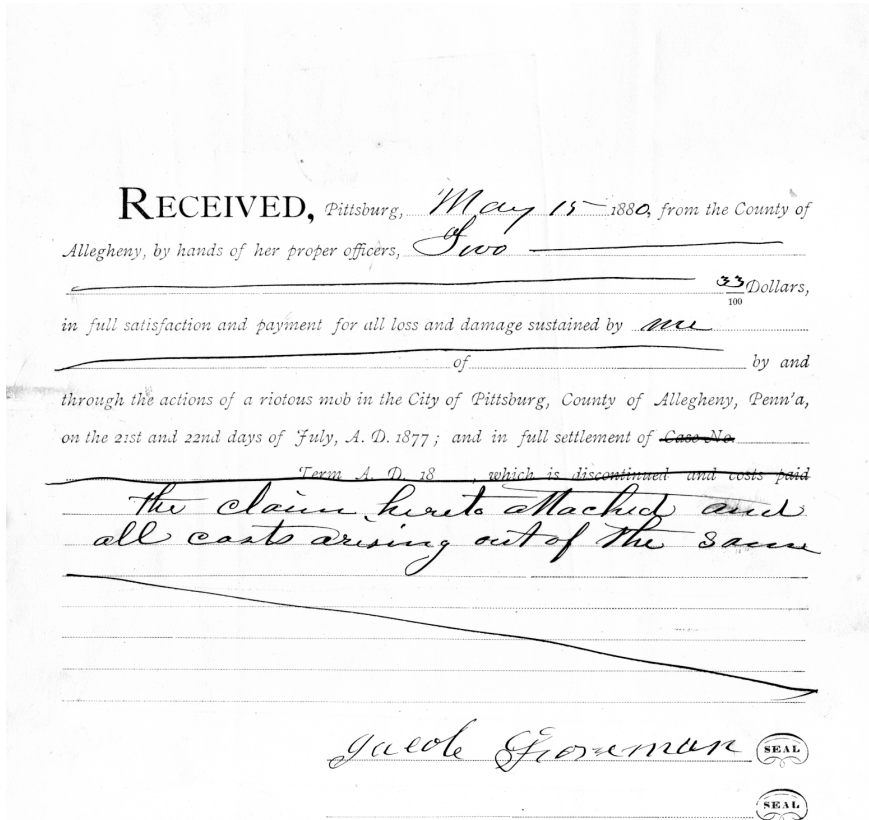 RECEIVED, Pittsburg, May 15 1880, from the County of
Allegheny, by hands of her proper officers, Two
33/100 Dollars,
in full satisfaction and payment for all loss and damage sustained by me
of by and
through the actions of a riotous mob in the City of Pittsburg, County of Allegheny, Penn'a,
on the 21st and 22nd days of July, A. D. 1877; and in full settlement of Case No.
Term A. D. 18 , which is discontinued and costs paid
the claim hereto attached and
all costs arising out of the same
Jacob
SEAL
SEAL